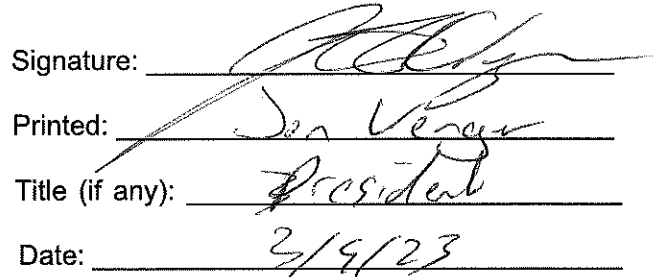 Signature:
Printed: Jon Venger
Title (if any): President
Date: 3/9/23